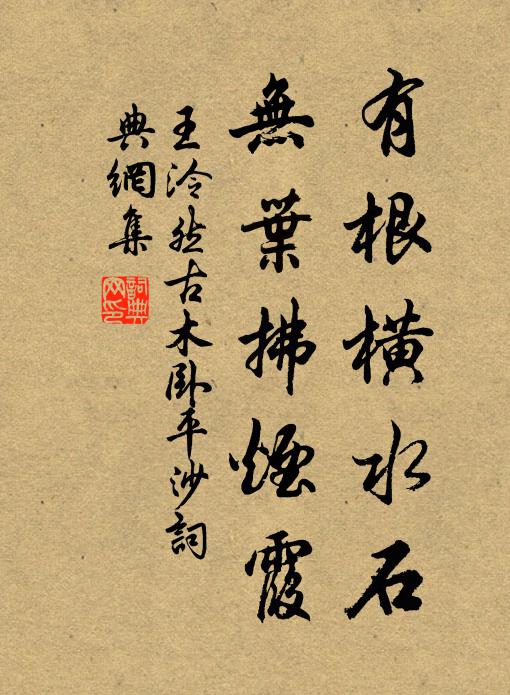 有根橫水石
無葉拂煙霞
王泠然古木臥平沙詞
典網集
詞典
网印